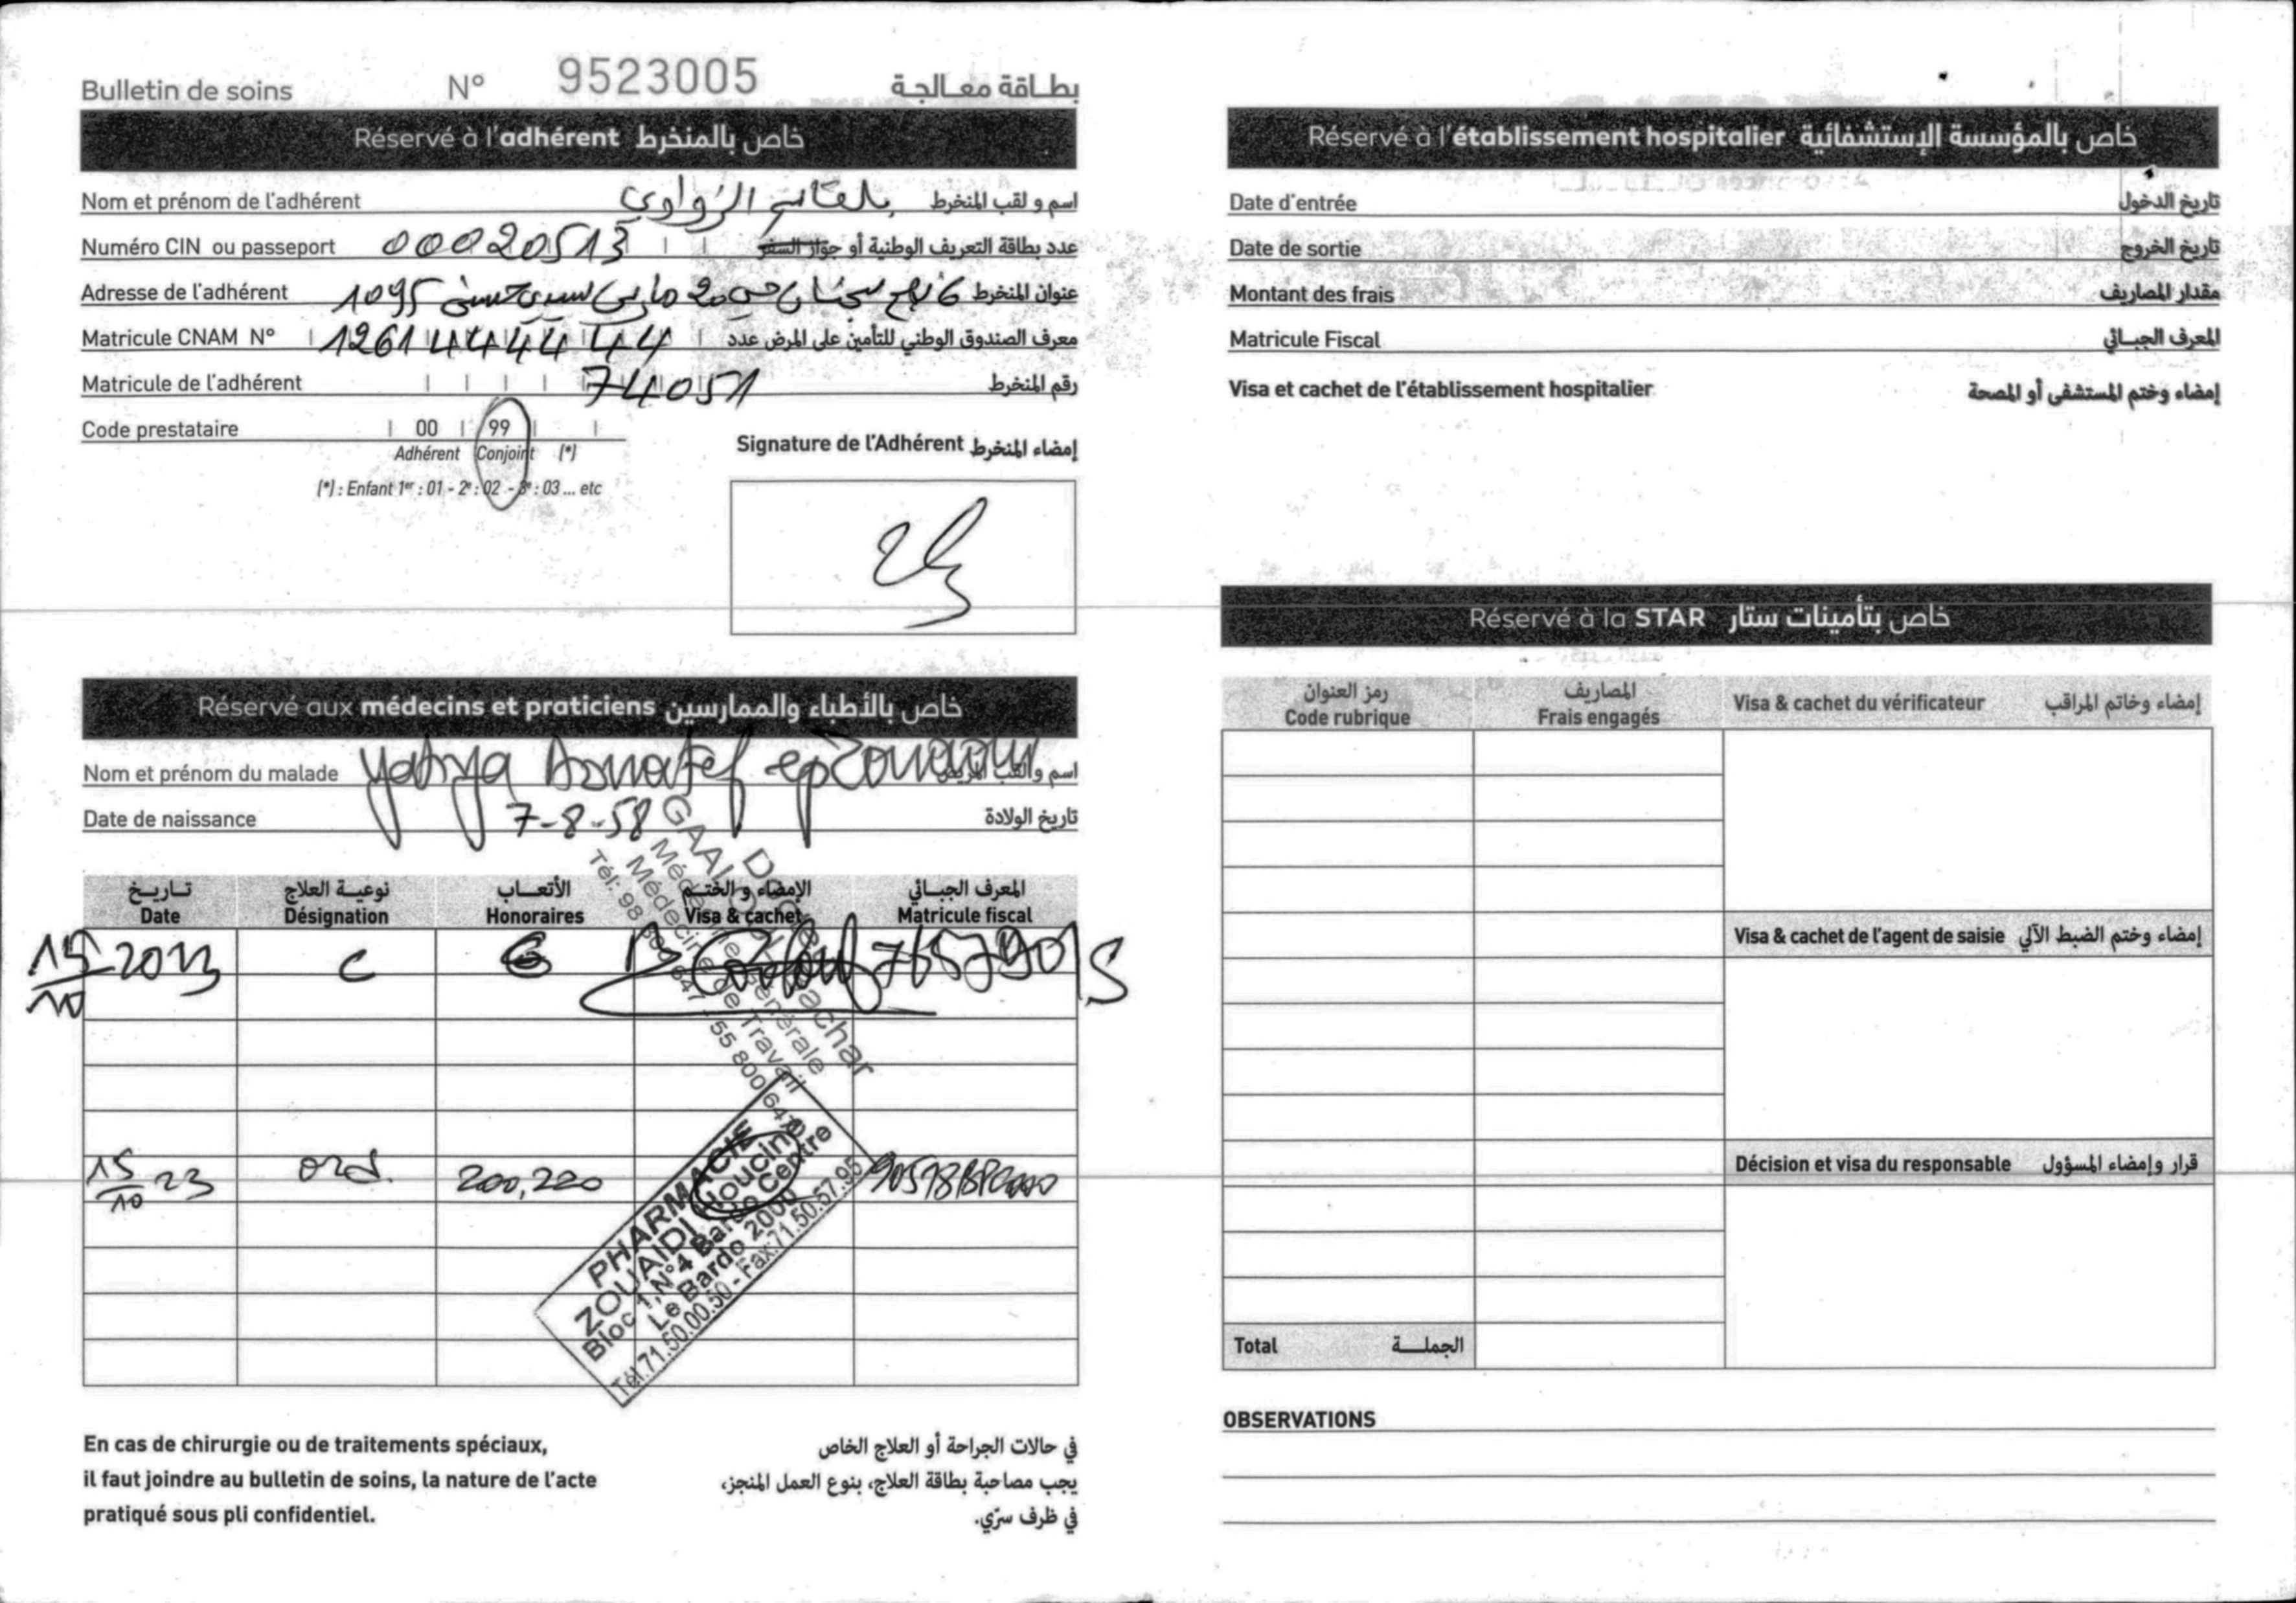 Bulletin de soins N° 9523005 بطاقة معالجة
Réservé à l'adhérent خاص بالمنخرط
Nom et prénom de l'adhérent بلقاسم الزواوي اسم و لقب المنخرط
Numéro CIN ou passeport 00020513 عدد بطاقة التعريف الوطنية أو جواز السفر
Adresse de l'adhérent 6 نهج سجنان حي 20 مارس سيدي حسين 1095 عنوان المنخرط
Matricule CNAM N° 1261444444 معرف الصندوق الوطني للتأمين على المرض عدد
Matricule de l'adhérent 74051 رقم المنخرط
Code prestataire 00 99
Adhérent Conjoint (*)
(*) : Enfant 1er : 01 - 2e : 02 - 3e : 03 ... etc
Signature de l'Adhérent إمضاء المنخرط
Réservé aux médecins et praticiens خاص بالأطباء والممارسين
Nom et prénom du malade Yahya Aouatef ep Zouaoui اسم ولقب المريض
Date de naissance 7-8-58 تاريخ الولادة
تاريخ نوعية العلاج الأتعاب الإمضاء و الختم المعرف الجبائي
Date Désignation Honoraires Visa & cachet Matricule fiscal
15/10 2023 C
Docteur
Médecine Générale
Médecine de Travail
Tél: 98 - 55 800 647
15/10 23 ord. 200,220
PHARMACIE
ZOUAIDI Houcine
Bloc 1, N°4 Bardo Centre
Le Bardo 2000
Tél.71.50.00.50 - Fax:71.50.57.95
En cas de chirurgie ou de traitements spéciaux,
il faut joindre au bulletin de soins, la nature de l'acte
pratiqué sous pli confidentiel.
في حالات الجراحة أو العلاج الخاص
يجب مصاحبة بطاقة العلاج، بنوع العمل المنجز،
في ظرف سرّي.
Réservé à l'établissement hospitalier خاص بالمؤسسة الإستشفائية
Date d'entrée تاريخ الدخول
Date de sortie تاريخ الخروج
Montant des frais مقدار المصاريف
Matricule Fiscal المعرف الجبائي
Visa et cachet de l'établissement hospitalier إمضاء وختم المستشفى أو المصحة
Réservé à la STAR خاص بتأمينات ستار
رمز العنوان المصاريف
Code rubrique Frais engagés Visa & cachet du vérificateur إمضاء وخاتم المراقب
Visa & cachet de l'agent de saisie إمضاء وختم الضبط الآلي
Décision et visa du responsable قرار وإمضاء المسؤول
Total الجملة
OBSERVATIONS